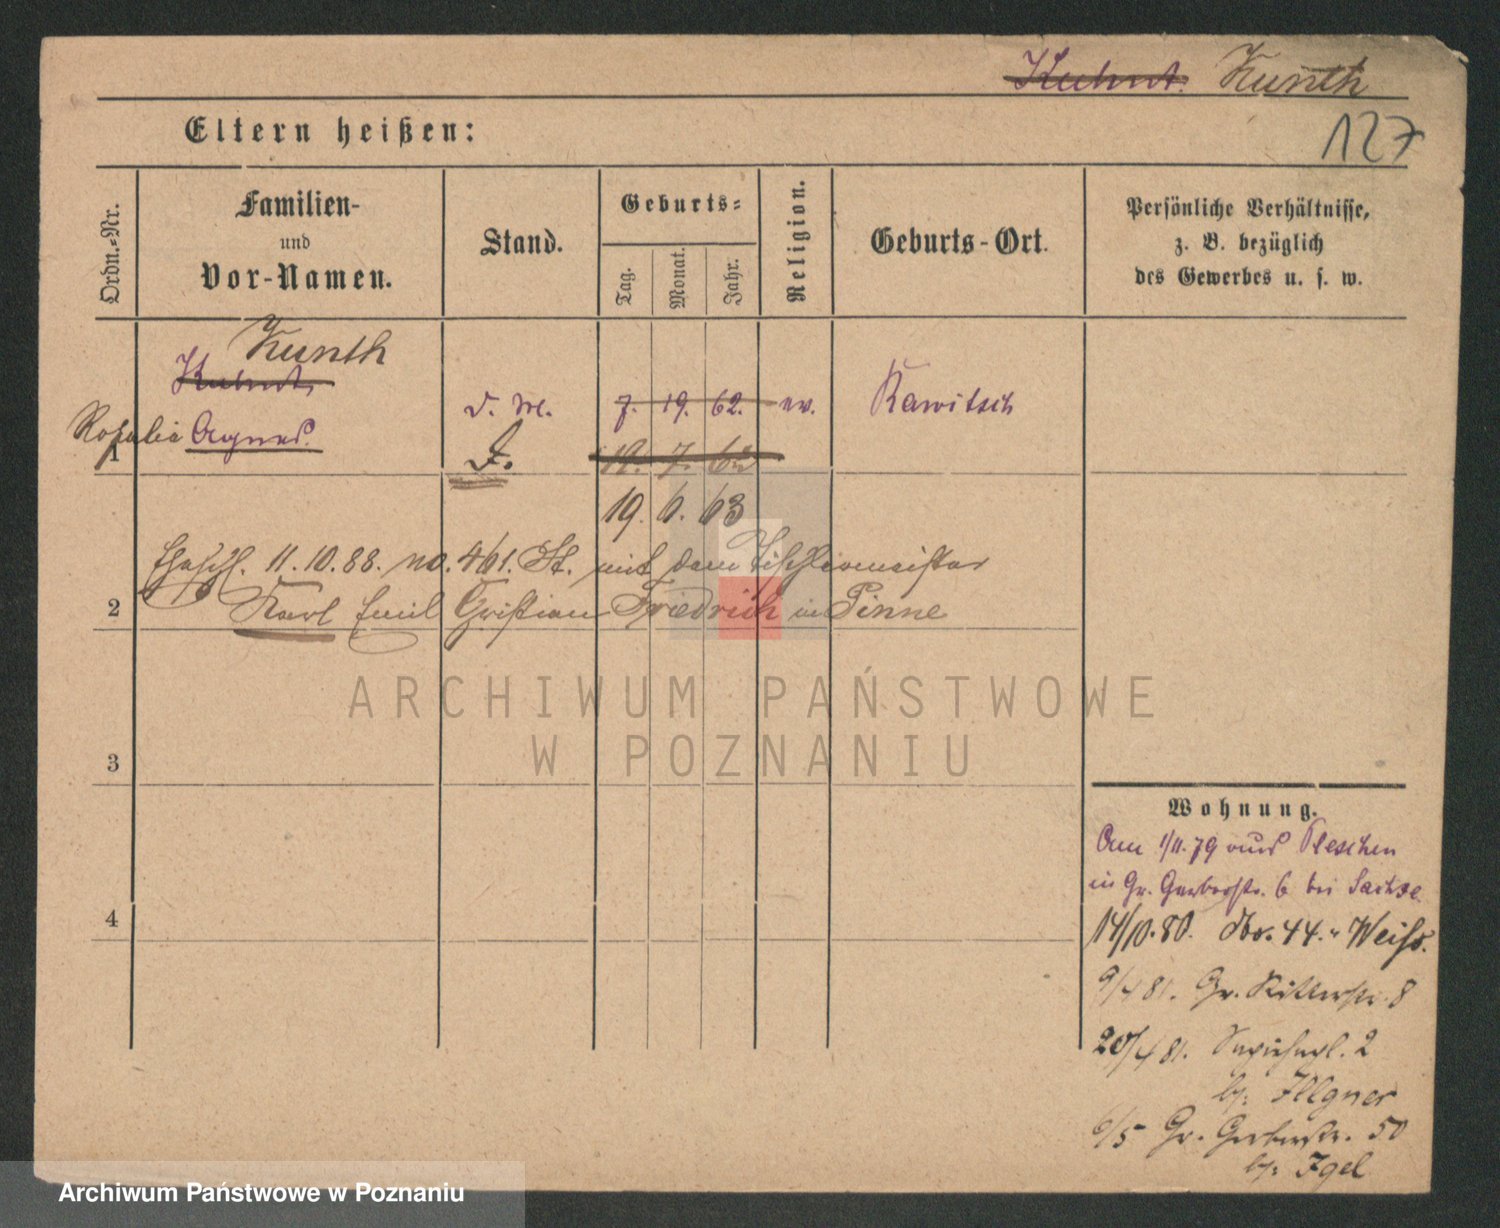 Kuhnt. Kunth
127
Eltern heißen:
Ordn.-Nr.
Familien-
und
Vor-Namen.
Stand.
Geburts-
Tag.
Monat.
Jahr.
Religion.
Geburts-Ort.
Persönliche Verhältnisse,
z. B. bezüglich
des Gewerbes u. s. w.
Kunth
Kuhnt,
Rosalie Agnes.
1
d. M.
7. 19. 62.
ev.
Rawitsch
19. 7. 62
19. 6. 63
Ehesch. 11.10.88. no. 461. St. mit dem Tischlermeister
2
Karl Emil Christian Friedrich in Pinne
3
4
Wohnung.
Am 1/11.79 aus Pleschen
in Gr. Gerberstr. 6 bei Sachse
14/10.80. do. 44. " Weiss.
9/4 81. Gr. Ritterstr. 8
20/4 81. Sapiehapl. 2
bei Illgner
6/5 Gr. Gerberstr. 50
bei Igel
ARCHIWUM PAŃSTWOWE
W POZNANIU
Archiwum Państwowe w Poznaniu